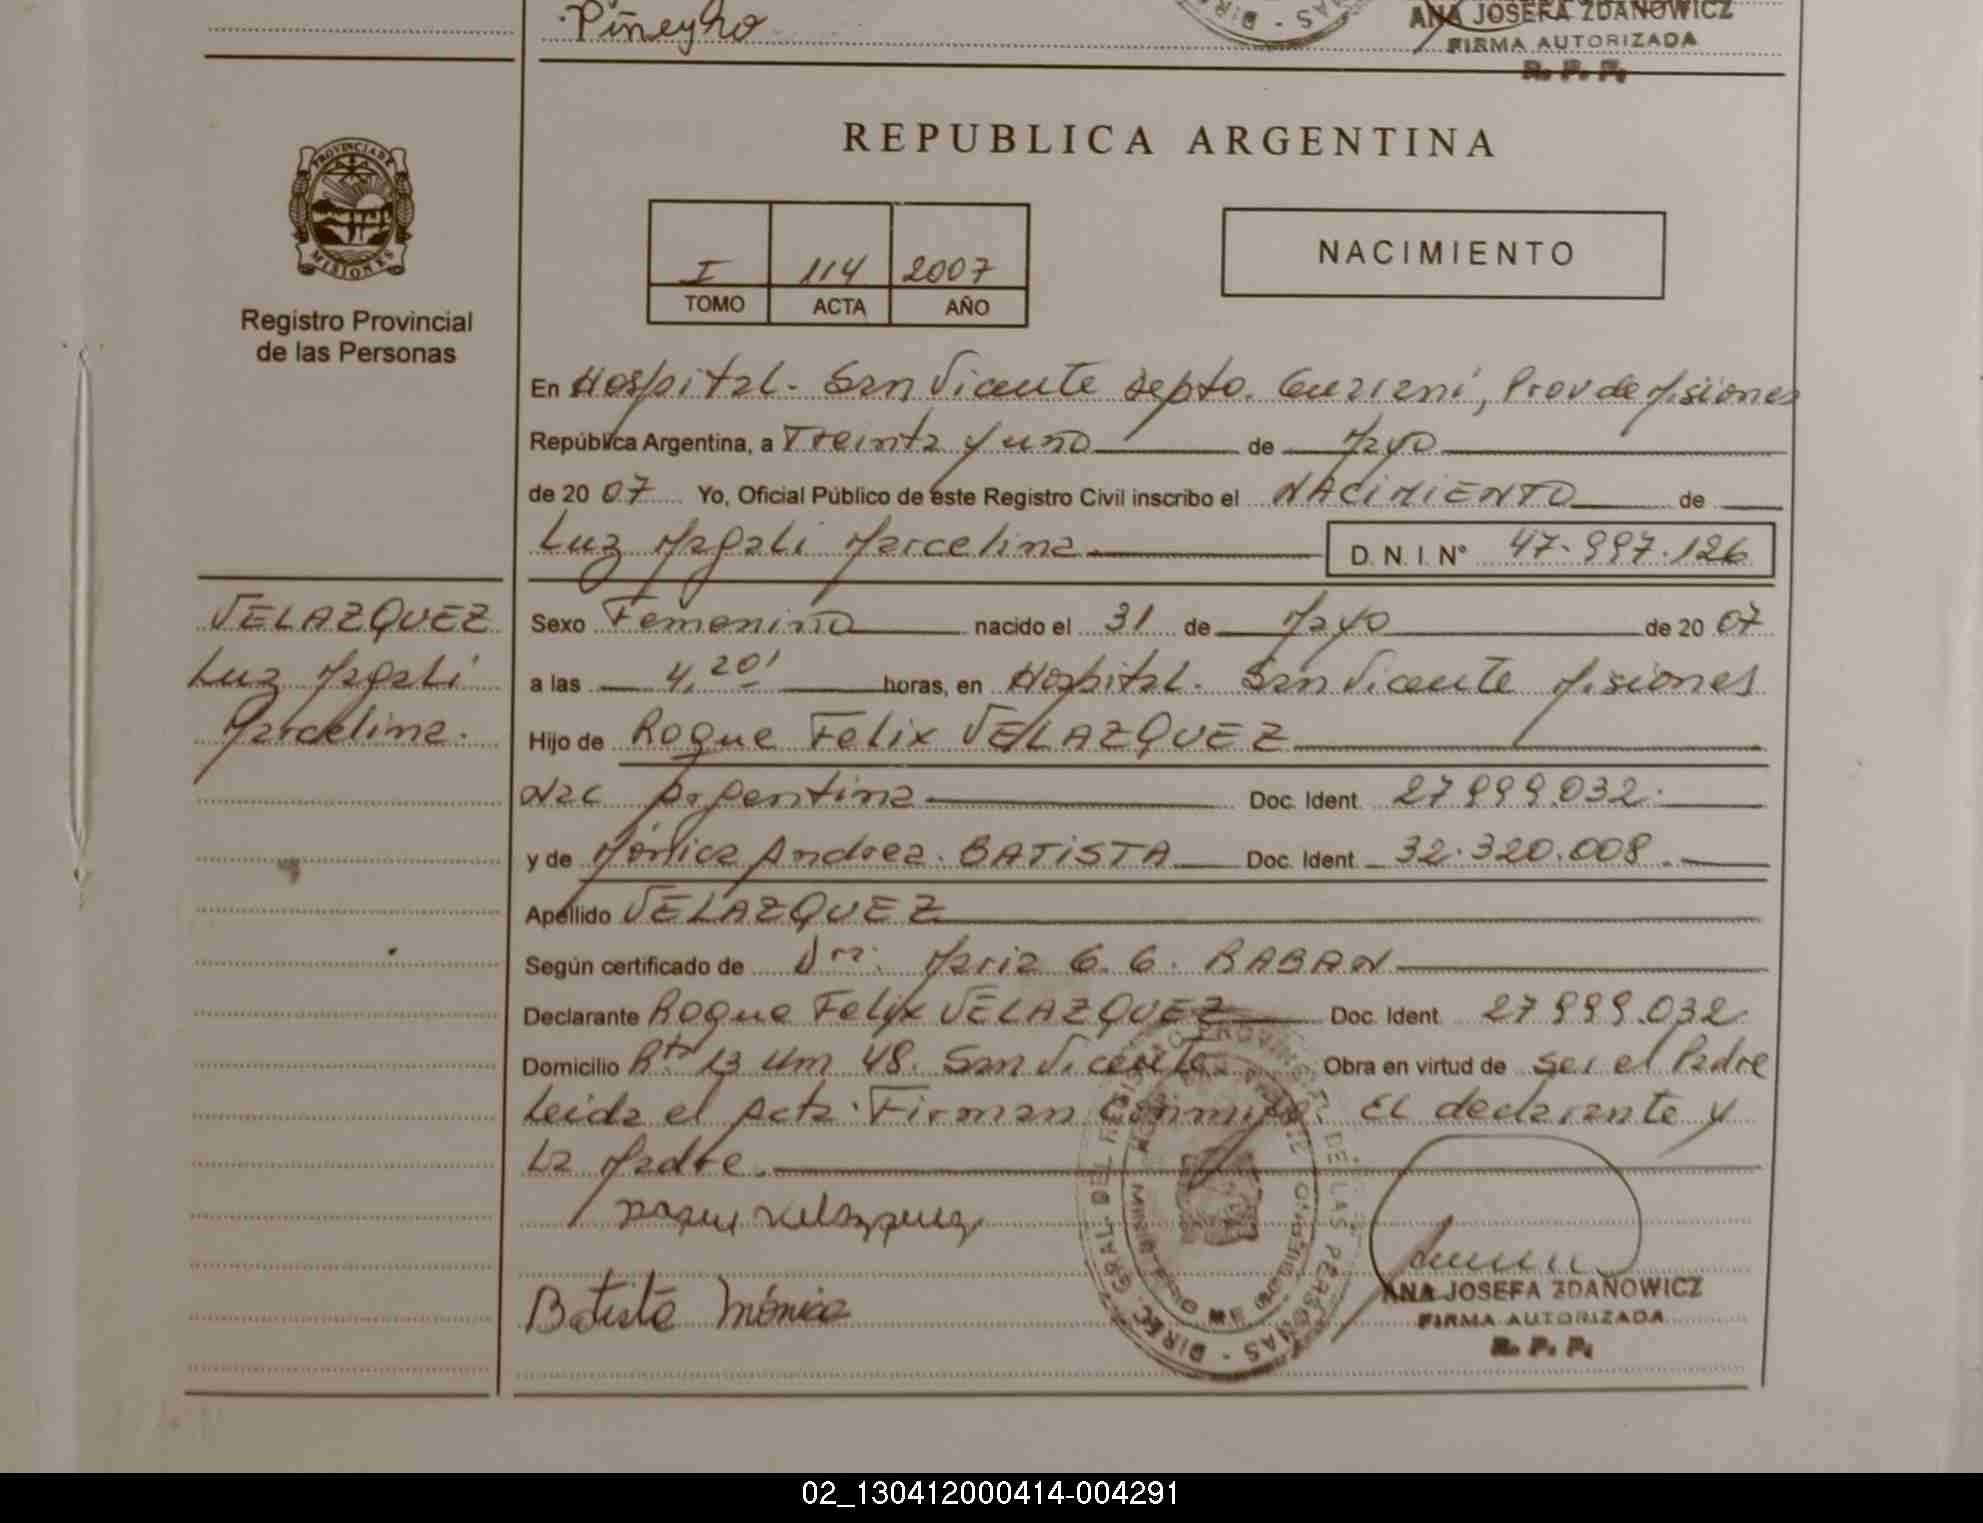 Piñeyro
ANA JOSEFA ZDANOWICZ
FIRMA AUTORIZADA
R. P. P.
REPUBLICA ARGENTINA
PROVINCIA DE
MISIONES
Registro Provincial
de las Personas
I 114 2007
TOMO ACTA AÑO
NACIMIENTO
En Hospital. San Vicente Depto. Guarani, Prov de Misiones
República Argentina, a Treinta y uno de Mayo
de 2007 Yo, Oficial Público de este Registro Civil inscribo el NACIMIENTO de
Luz Magali Marcelina D. N. I. N° 47.997.126
VELAZQUEZ
Luz Magali
Marcelina.
Sexo Femenino nacido el 31 de Mayo de 2007
a las 4,20' horas, en Hospital. San Vicente Misiones
Hijo de Roque Felix VELAZQUEZ
Nac Argentina Doc. Ident. 27.999.032.
y de Mónica Andrea. BATISTA Doc. Ident. 32.320.008.
Apellido VELAZQUEZ
Según certificado de Dra. Maria G. G. RABAN
Declarante Roque Felix VELAZQUEZ Doc. Ident. 27.999.032.
Domicilio Rta 13 Km 48. San Vicente. Obra en virtud de ser el Padre
Leida el Acta. Firman Conmigo. El declarante y
La Madre.
Roque Velazquez
Batista Mónica
ANA JOSEFA ZDANOWICZ
FIRMA AUTORIZADA
R. P. P.
02_130412000414-004291